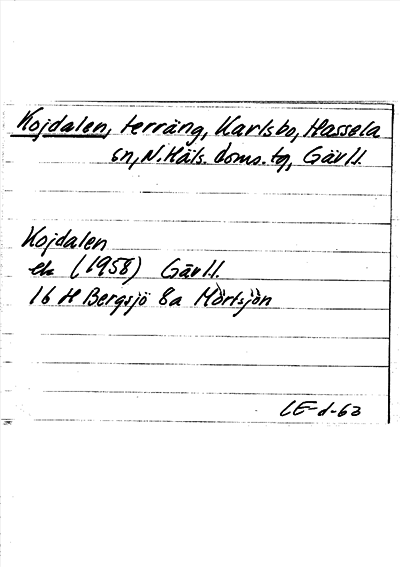 Kojdalen, terräng, Karlsbo, Hassela
sn, N. Häls. doms. tg, Gävl l.
Kojdalen
ek (1958) Gävl l.
16 H Bergsjö 8a Mörtsjön
LE-d-63